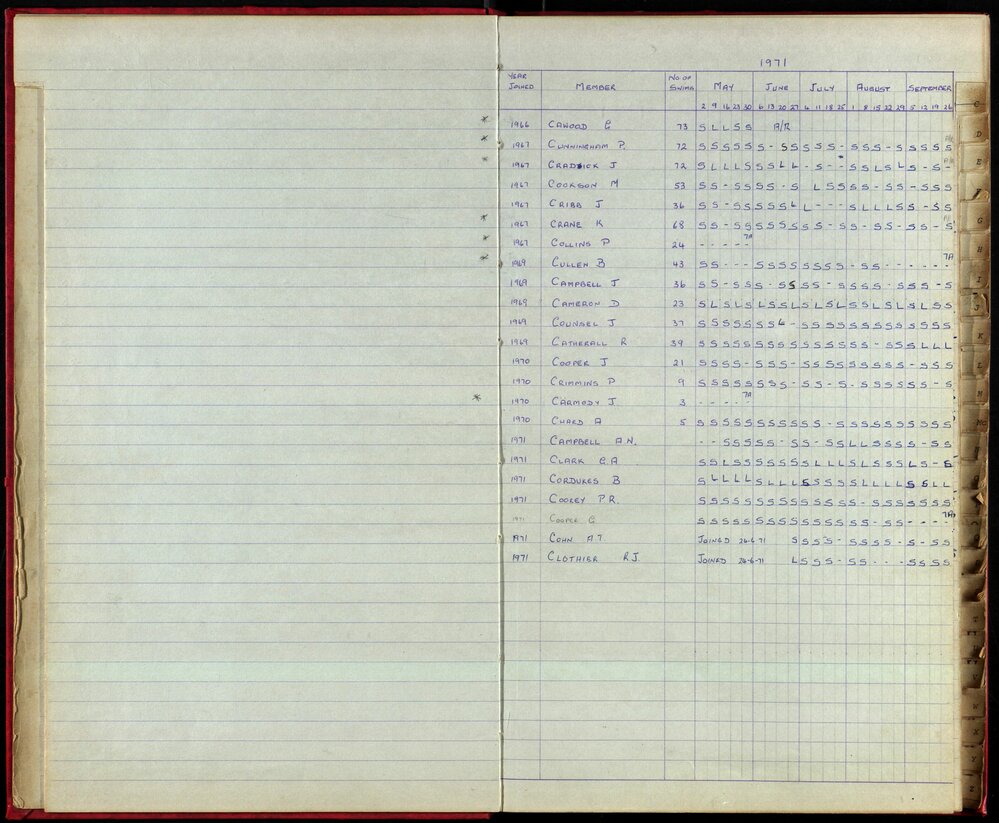 1971
YEAR JOINED MEMBER NO OF SWIMS MAY JUNE JULY AUGUST SEPTEMBER
2 9 16 23 30 6 13 20 27 4 11 18 25 1 8 15 22 29 5 12 19 26
* 1966 CAWOOD G 73 S L L S S A/R
* 1967 CUNNINGHAM P. 72 S S S S S S - S S S S S - S S S - S S S S S
* 1967 CRADDICK J 72 S L L L S S S L L - S - - S S L S L S - S -
1967 COOKSON M 53 S S - S S S S - S L S S S S - S S - S S S
1967 CRIBB J 36 S S - S S S S S L L - - - S L L L S S - S S
* 1967 CRANE K 68 S S - S S S S S S S S - S S - S S - S S - S
* 1967 COLLINS P 24 - - - - - 7A
* 1969 CULLEN B 43 S S - - - S S S S S S S S - S S - - - - - - 7A
1969 CAMPBELL J 36 S S - S S S - S S S S - S S S S - S S S - S
1969 CAMERON D 23 S L S L S L S S L S L S L S S L S L S L S S
1969 COUNSEL J 37 S S S S S S S L - S S S S S S S S S S S S S
1969 CATHERALL R 39 S S S S S S S S S S S S S S S - S S S L L L
1970 COOPER J 21 S S S S - S S S - S S S S S S S S S - S S S
1970 CRIMMINS P 9 S S S S S S S S - S S - S - S S S S S S - S
* 1970 CARMODY J 3 - - - - - 7A
1970 CHARD A 5 S S S S S S S S S S S - S S S S S S S S S S
1971 CAMPBELL A.N. - - S S S S S - S S - S S L L S S S S - S S
1971 CLARK G A S S L S S S S S S S L L L S L S S S L S - S
1971 CORDUKES B S L L L L S L L L S S S S S L L L L S S L L
1971 COOLEY P R. S S S S S S S S S S S S S S - S S S S S S S
1971 COOPER G S S S S S S S S S S S S S S S - S S - - - - 7A
1971 COHN A T. JOINED 26-6-71 S S S S - S S S S - S - S S
1971 CLOTHIER R J. JOINED 26-6-71 L S S S - S S - - - S S S S
C
D
E
F
G
H
I
J
K
L
M
MC
W
X
Y
Z